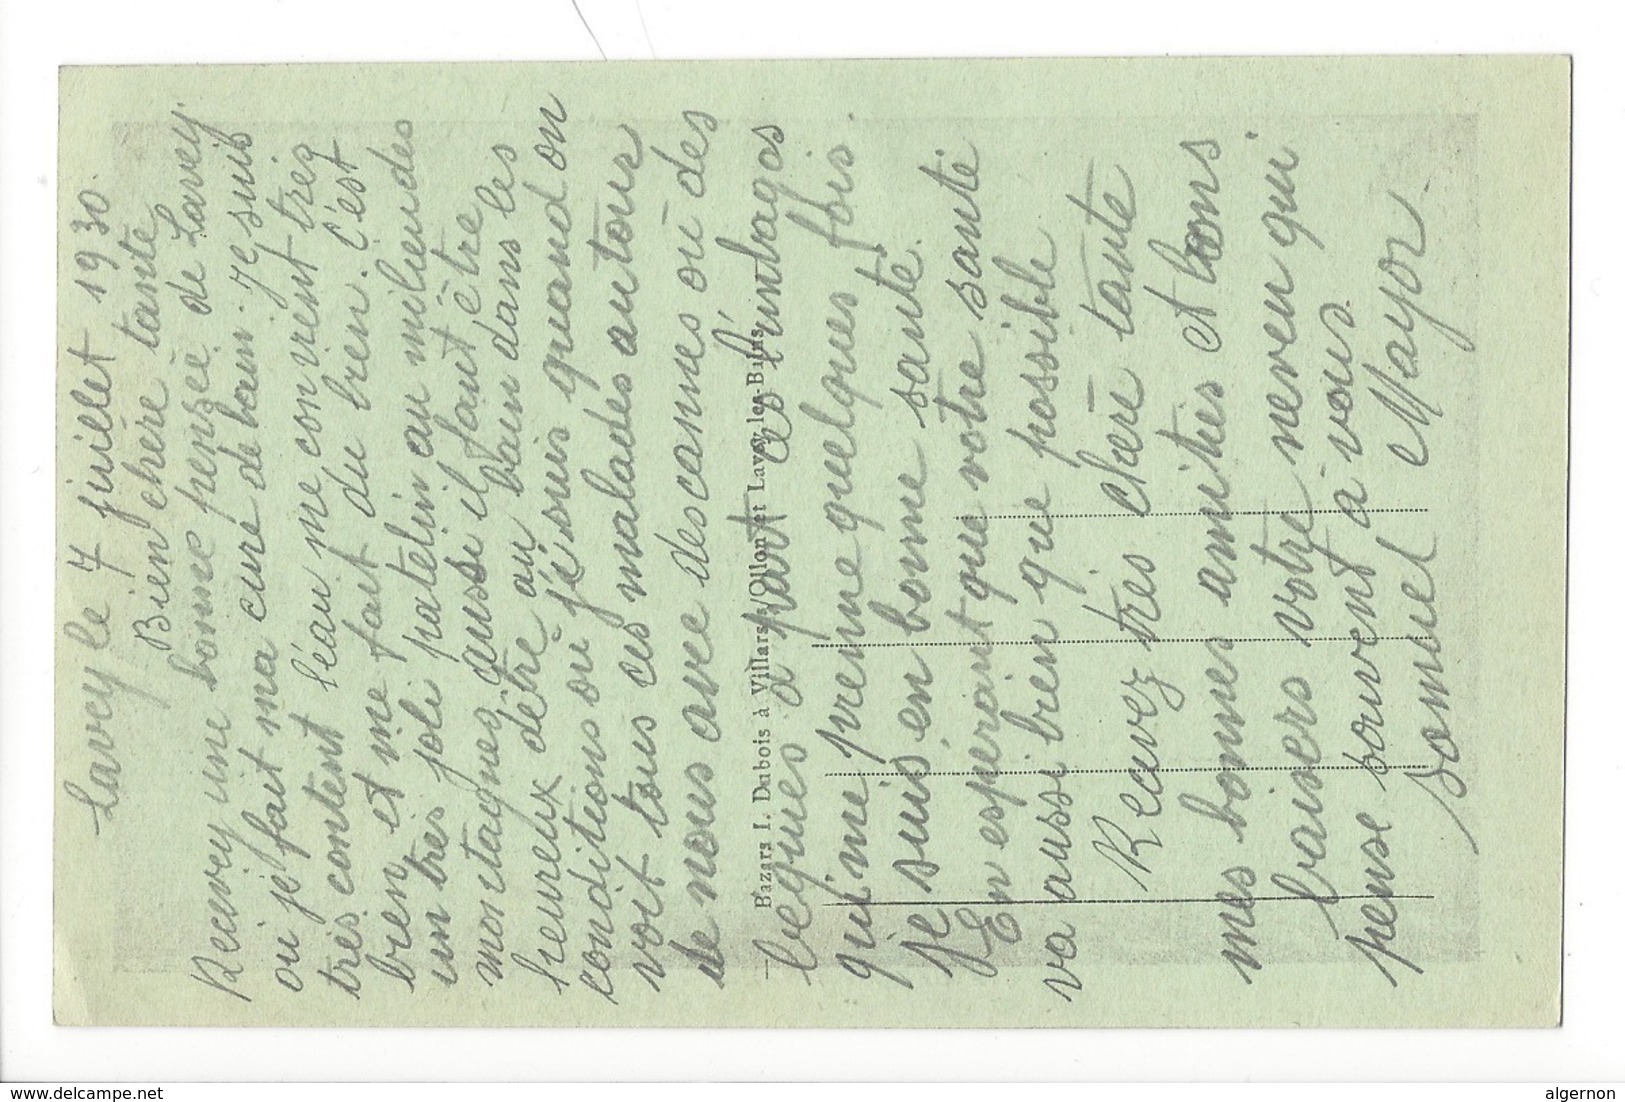 Lavey le 7 juillet 1930.
Bien chère tante
Recevez une bonne pensée de Lavey
ou je fait ma cure de bain. Je suis
très content l'eau me convient très
bien et me fait du bien. C'est
un très joli patelin au milieu des
montagnes, aussi il faut être
heureux d'être au bain dans les
conditions ou j'ai suis quand on
voit tous ces malades autour
de nous avec des cannes ou des
bequilles à part les lumbagos
qui me prenne quelques fois.
je suis en bonne santé.
En esperant que votre santé
va aussi bien que possible
Recevez très chère tante
mes bonnes amitiés et bons
baisers votre neveu qui
pense souvent à vous.
Samuel Mayor
Bazars I. Dubois à Villars s/Ollon et Lavey-les-Bains
delcampe.net
algernon